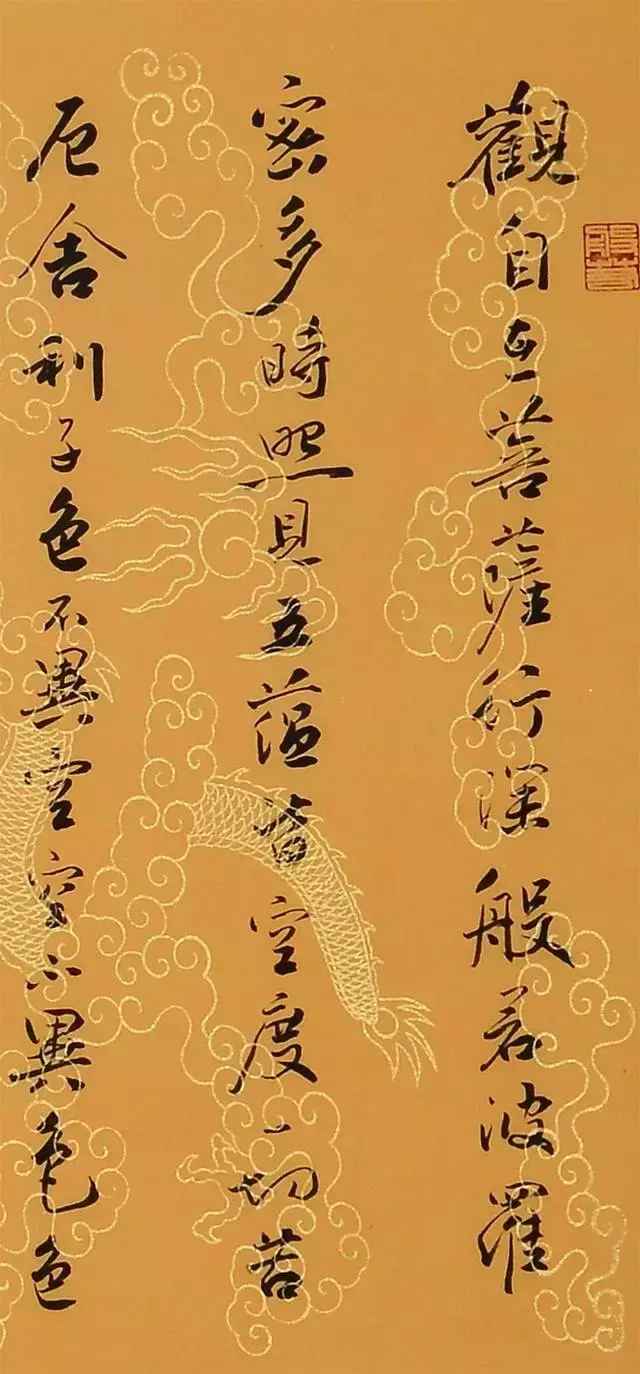 觀自在菩薩行深般若波羅
密多時照見五蘊皆空度一切苦
厄舍利子色不異空空不異色色